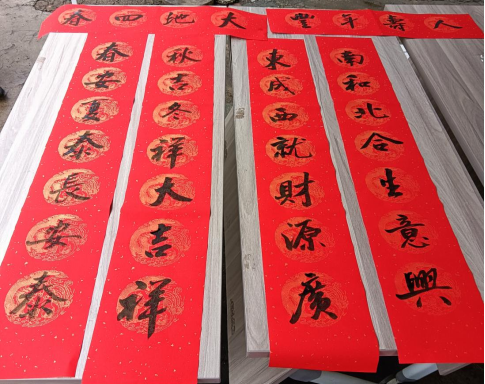 人壽年豐
南和北合生意興
東成西就財源廣
大地回春
秋吉冬祥大吉祥
春安夏泰長安泰